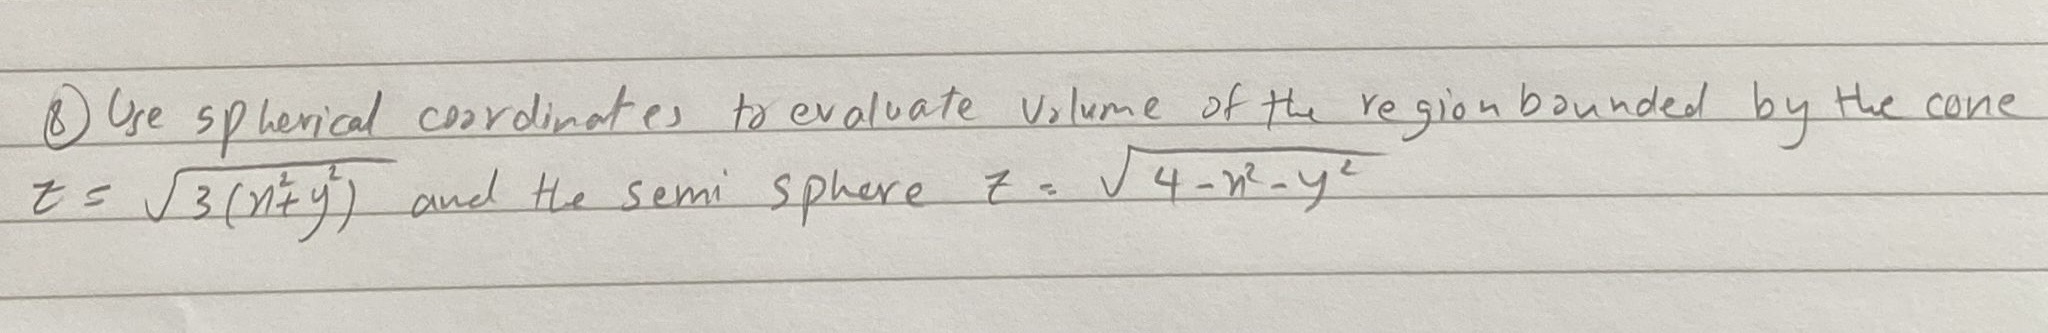 ⑧ Use spherical coordinates to evaluate volume of the region bounded by the cone
z = √3(x²+y²) and the semi sphere z = √4-x²-y²